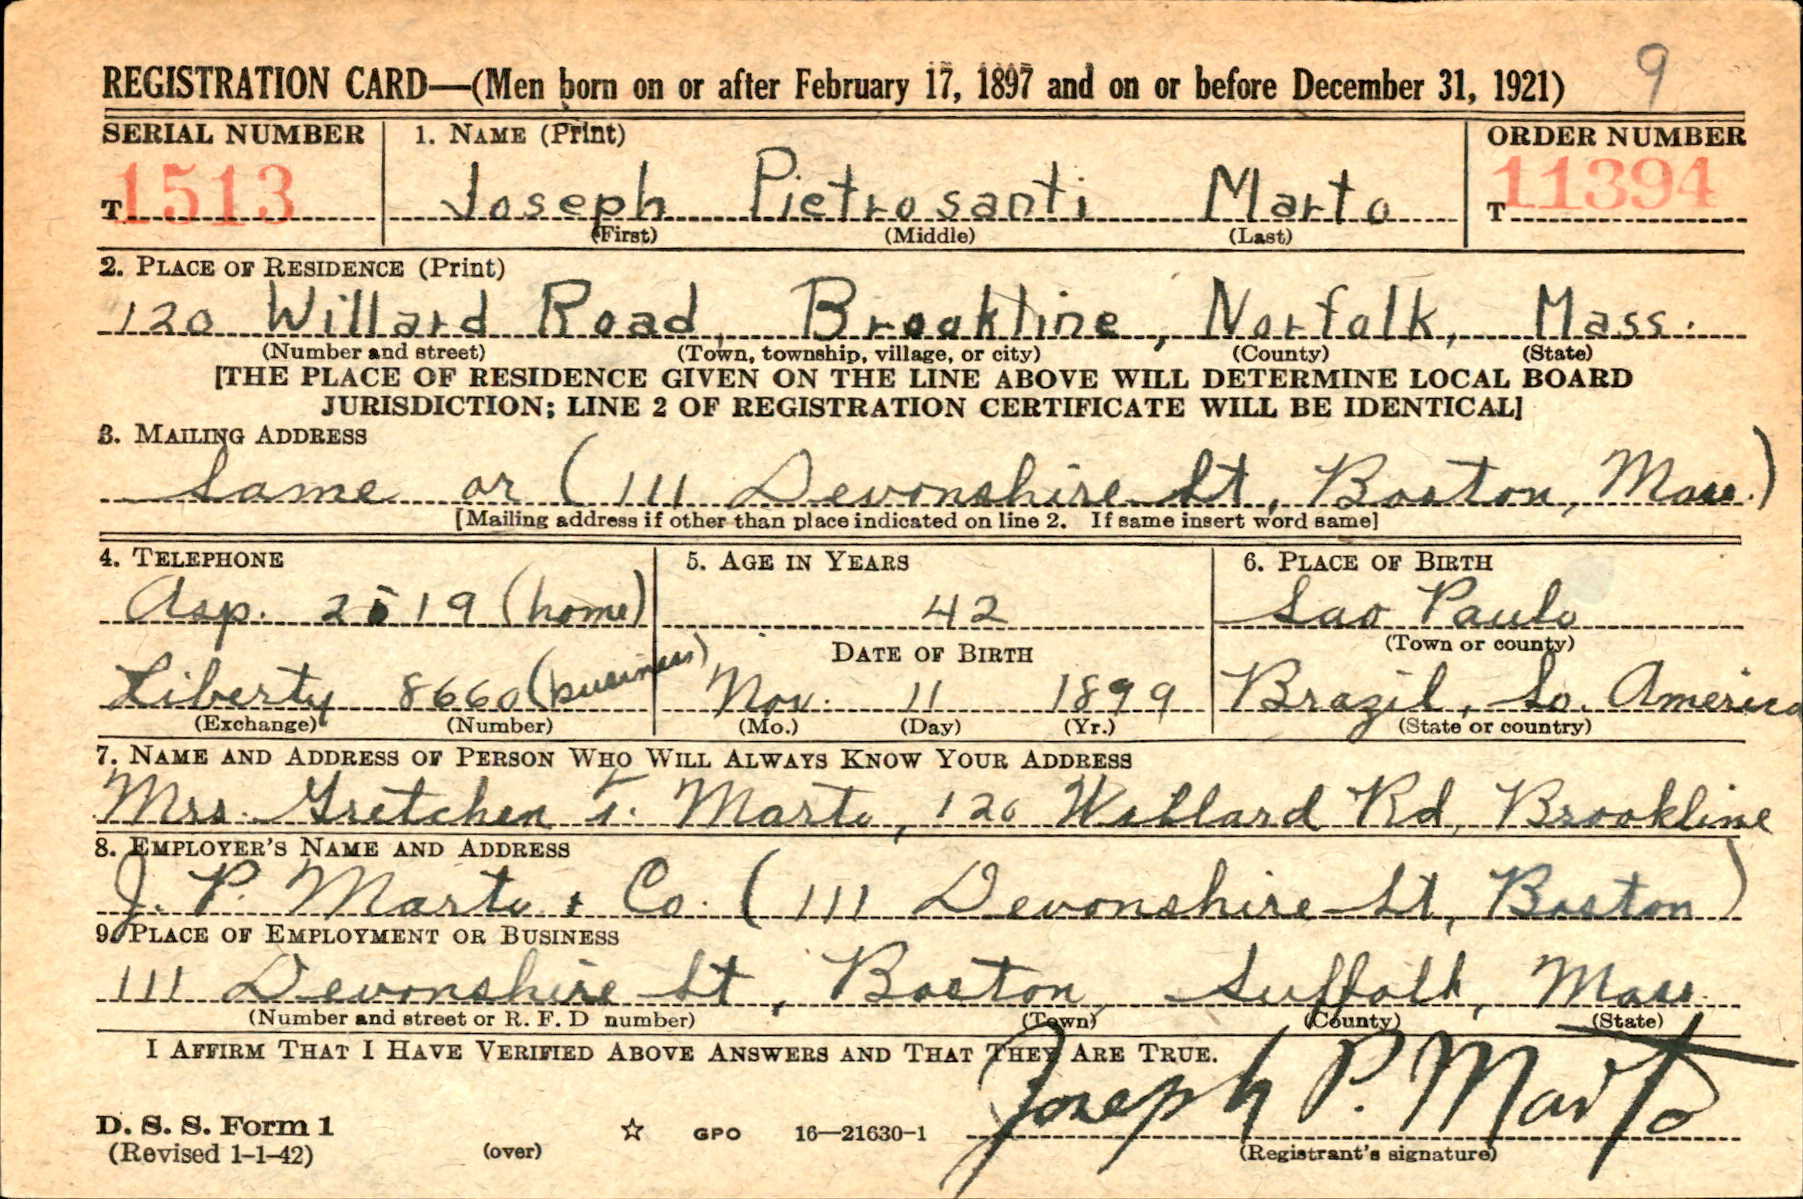 9
REGISTRATION CARD—(Men born on or after February 17, 1897 and on or before December 31, 1921)
SERIAL NUMBER 1. NAME (Print) ORDER NUMBER
T 1513 Joseph Pietrosanti Marto T 11394
(First) (Middle) (Last)
2. PLACE OF RESIDENCE (Print)
120 Willard Road, Brookline, Norfolk, Mass.
(Number and street) (Town, township, village, or city) (County) (State)
[THE PLACE OF RESIDENCE GIVEN ON THE LINE ABOVE WILL DETERMINE LOCAL BOARD
JURISDICTION; LINE 2 OF REGISTRATION CERTIFICATE WILL BE IDENTICAL]
3. MAILING ADDRESS
Same or (111 Devonshire St, Boston, Mass.)
[Mailing address if other than place indicated on line 2. If same insert word same]
4. TELEPHONE 5. AGE IN YEARS 6. PLACE OF BIRTH
Asp. 2519 (home) 42 Sao Paulo
DATE OF BIRTH (Town or county)
Liberty 8660 (business) Nov. 11 1899 Brazil, So. America
(Exchange) (Number) (Mo.) (Day) (Yr.) (State or country)
7. NAME AND ADDRESS OF PERSON WHO WILL ALWAYS KNOW YOUR ADDRESS
Mrs. Gretchen T. Marto, 120 Willard Rd, Brookline
8. EMPLOYER'S NAME AND ADDRESS
J. P. Marto + Co. (111 Devonshire St, Boston)
9. PLACE OF EMPLOYMENT OR BUSINESS
111 Devonshire St, Boston, Suffolk, Mass.
(Number and street or R. F. D number) (Town) (County) (State)
I AFFIRM THAT I HAVE VERIFIED ABOVE ANSWERS AND THAT THEY ARE TRUE.
Joseph P. Marto
D. S. S. Form 1
(Revised 1-1-42) (over) ☆ GPO 16—21630-1 (Registrant's signature)